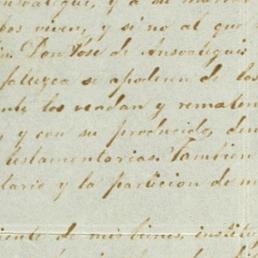 y a su
bos viven, y si no al que
Don Jose de Ansoategui
fallezca se apoderen de los
ente los vendan y rematen
y con su producido, den
testamentarias. Tambien
tario y la particion de m
iente de mis bienes, instituy